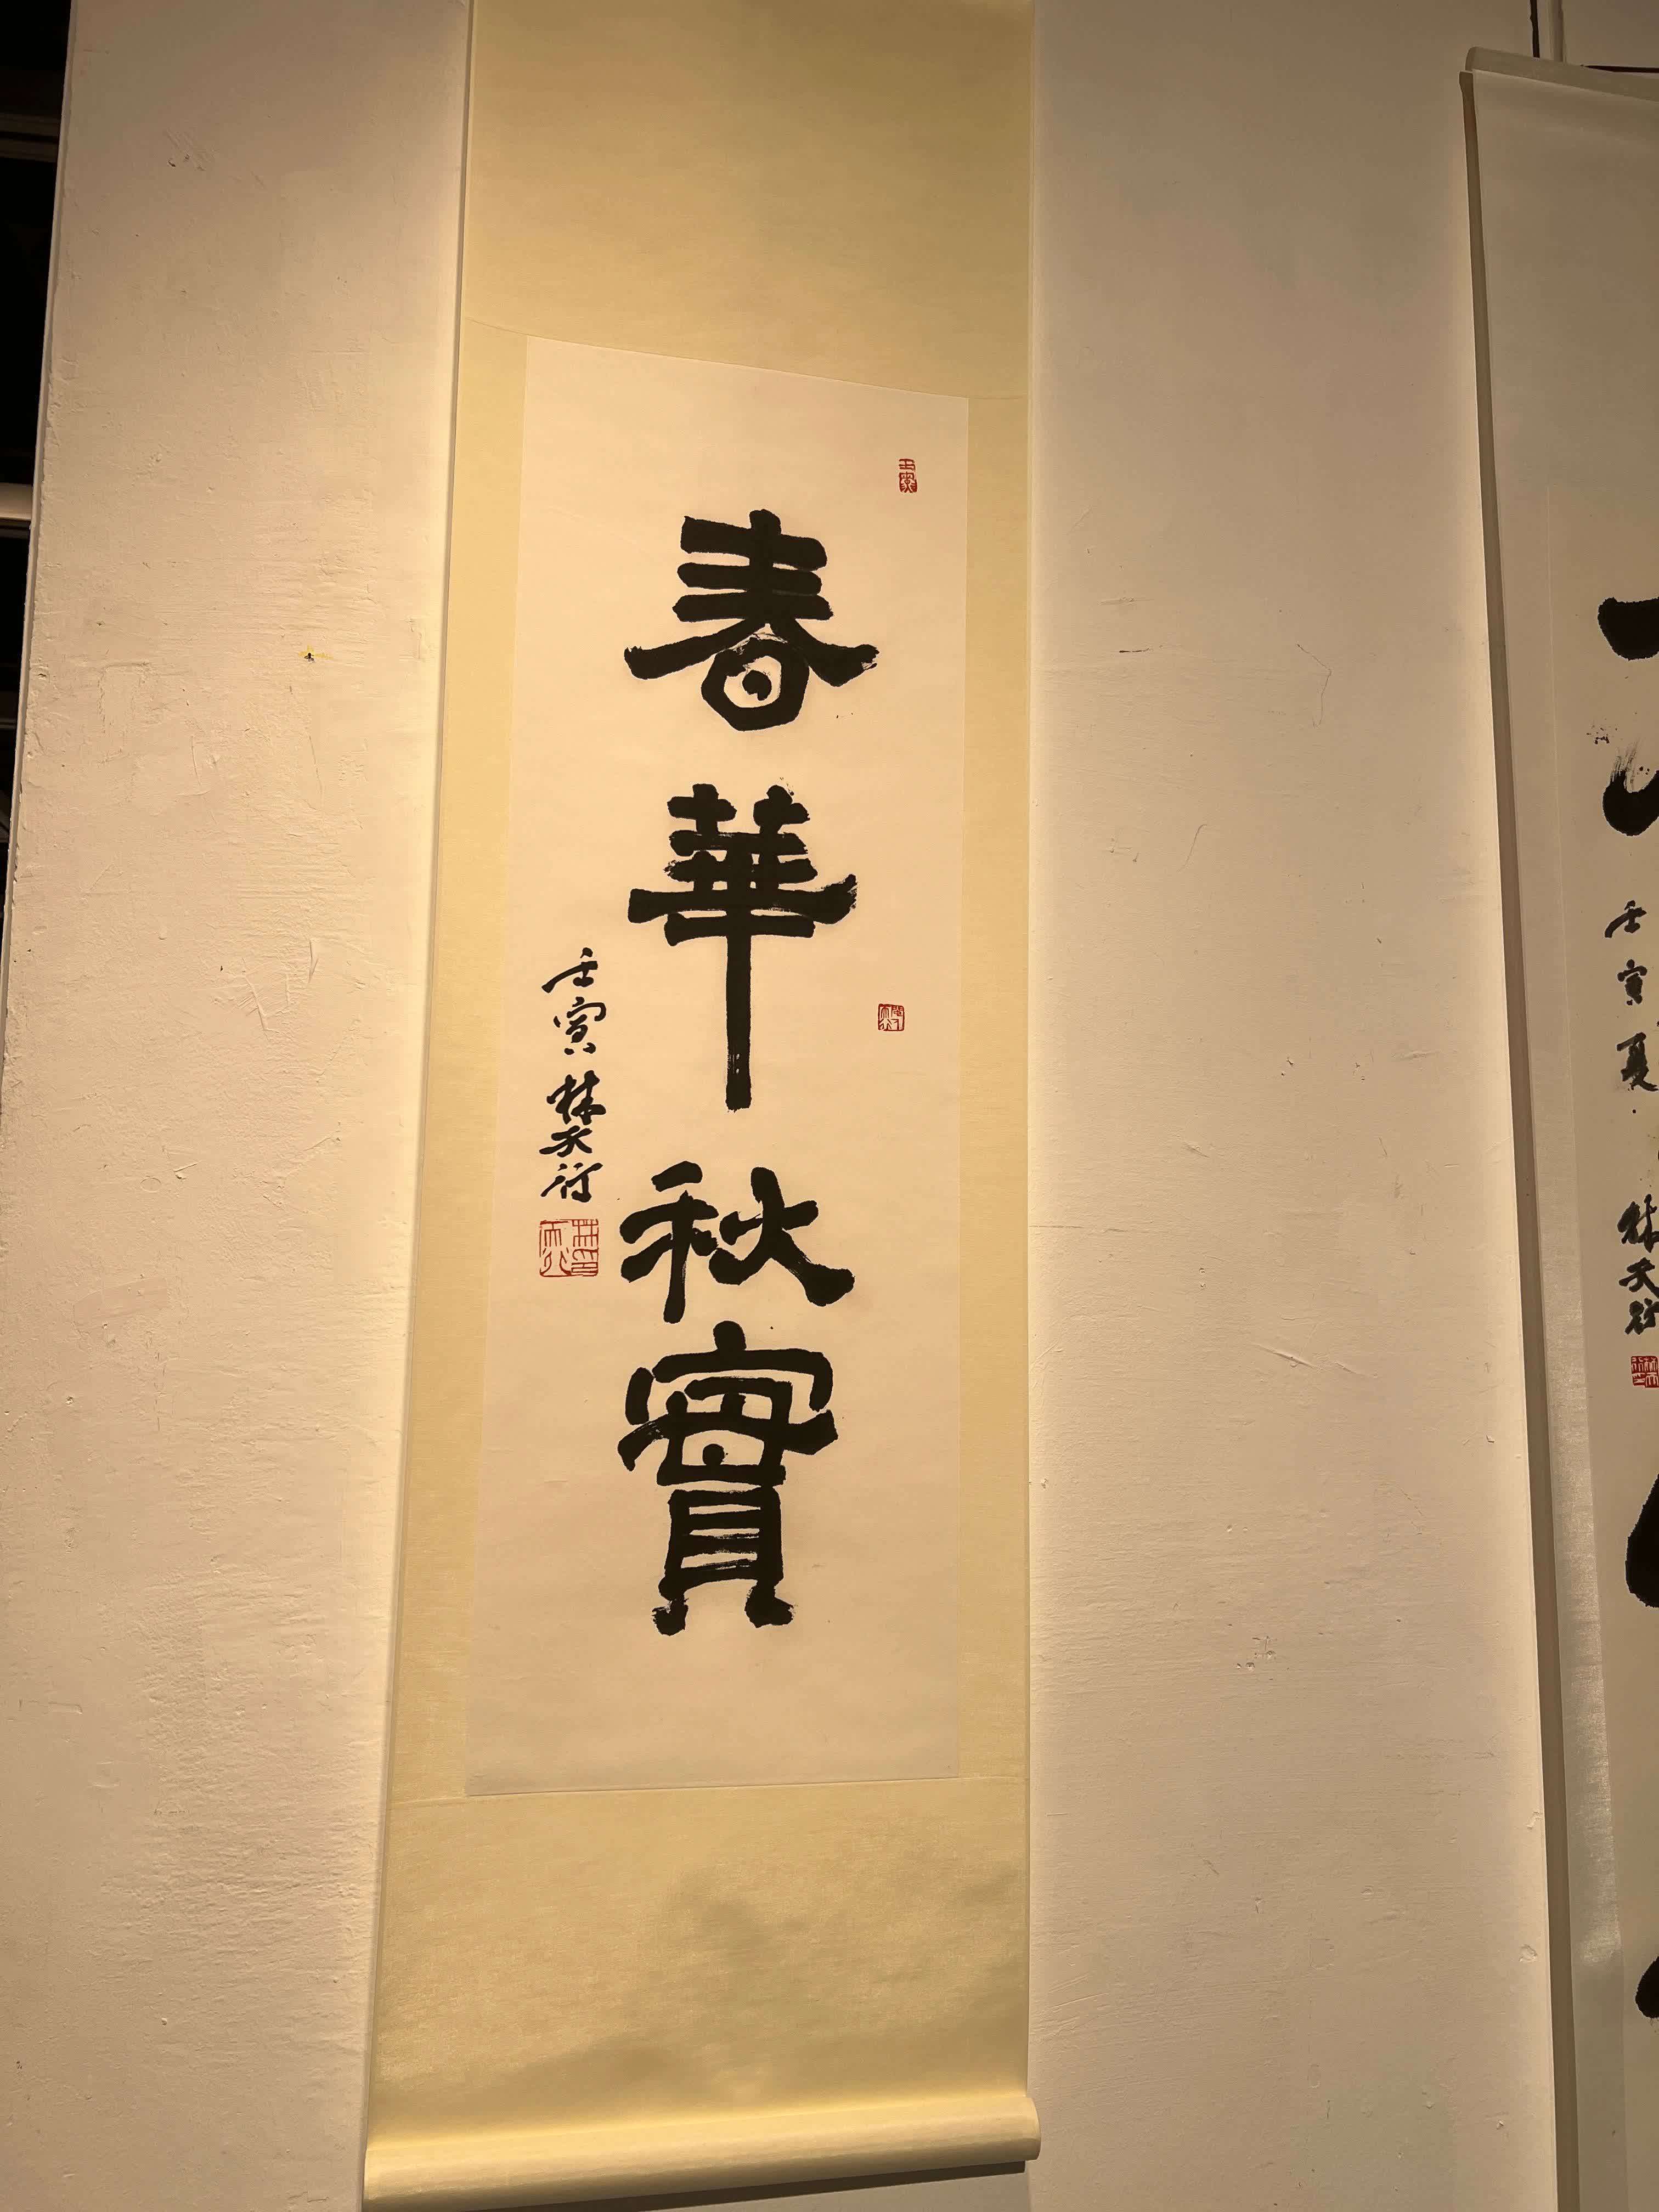 春華秋實
壬寅 林天行
壬寅夏
林天行